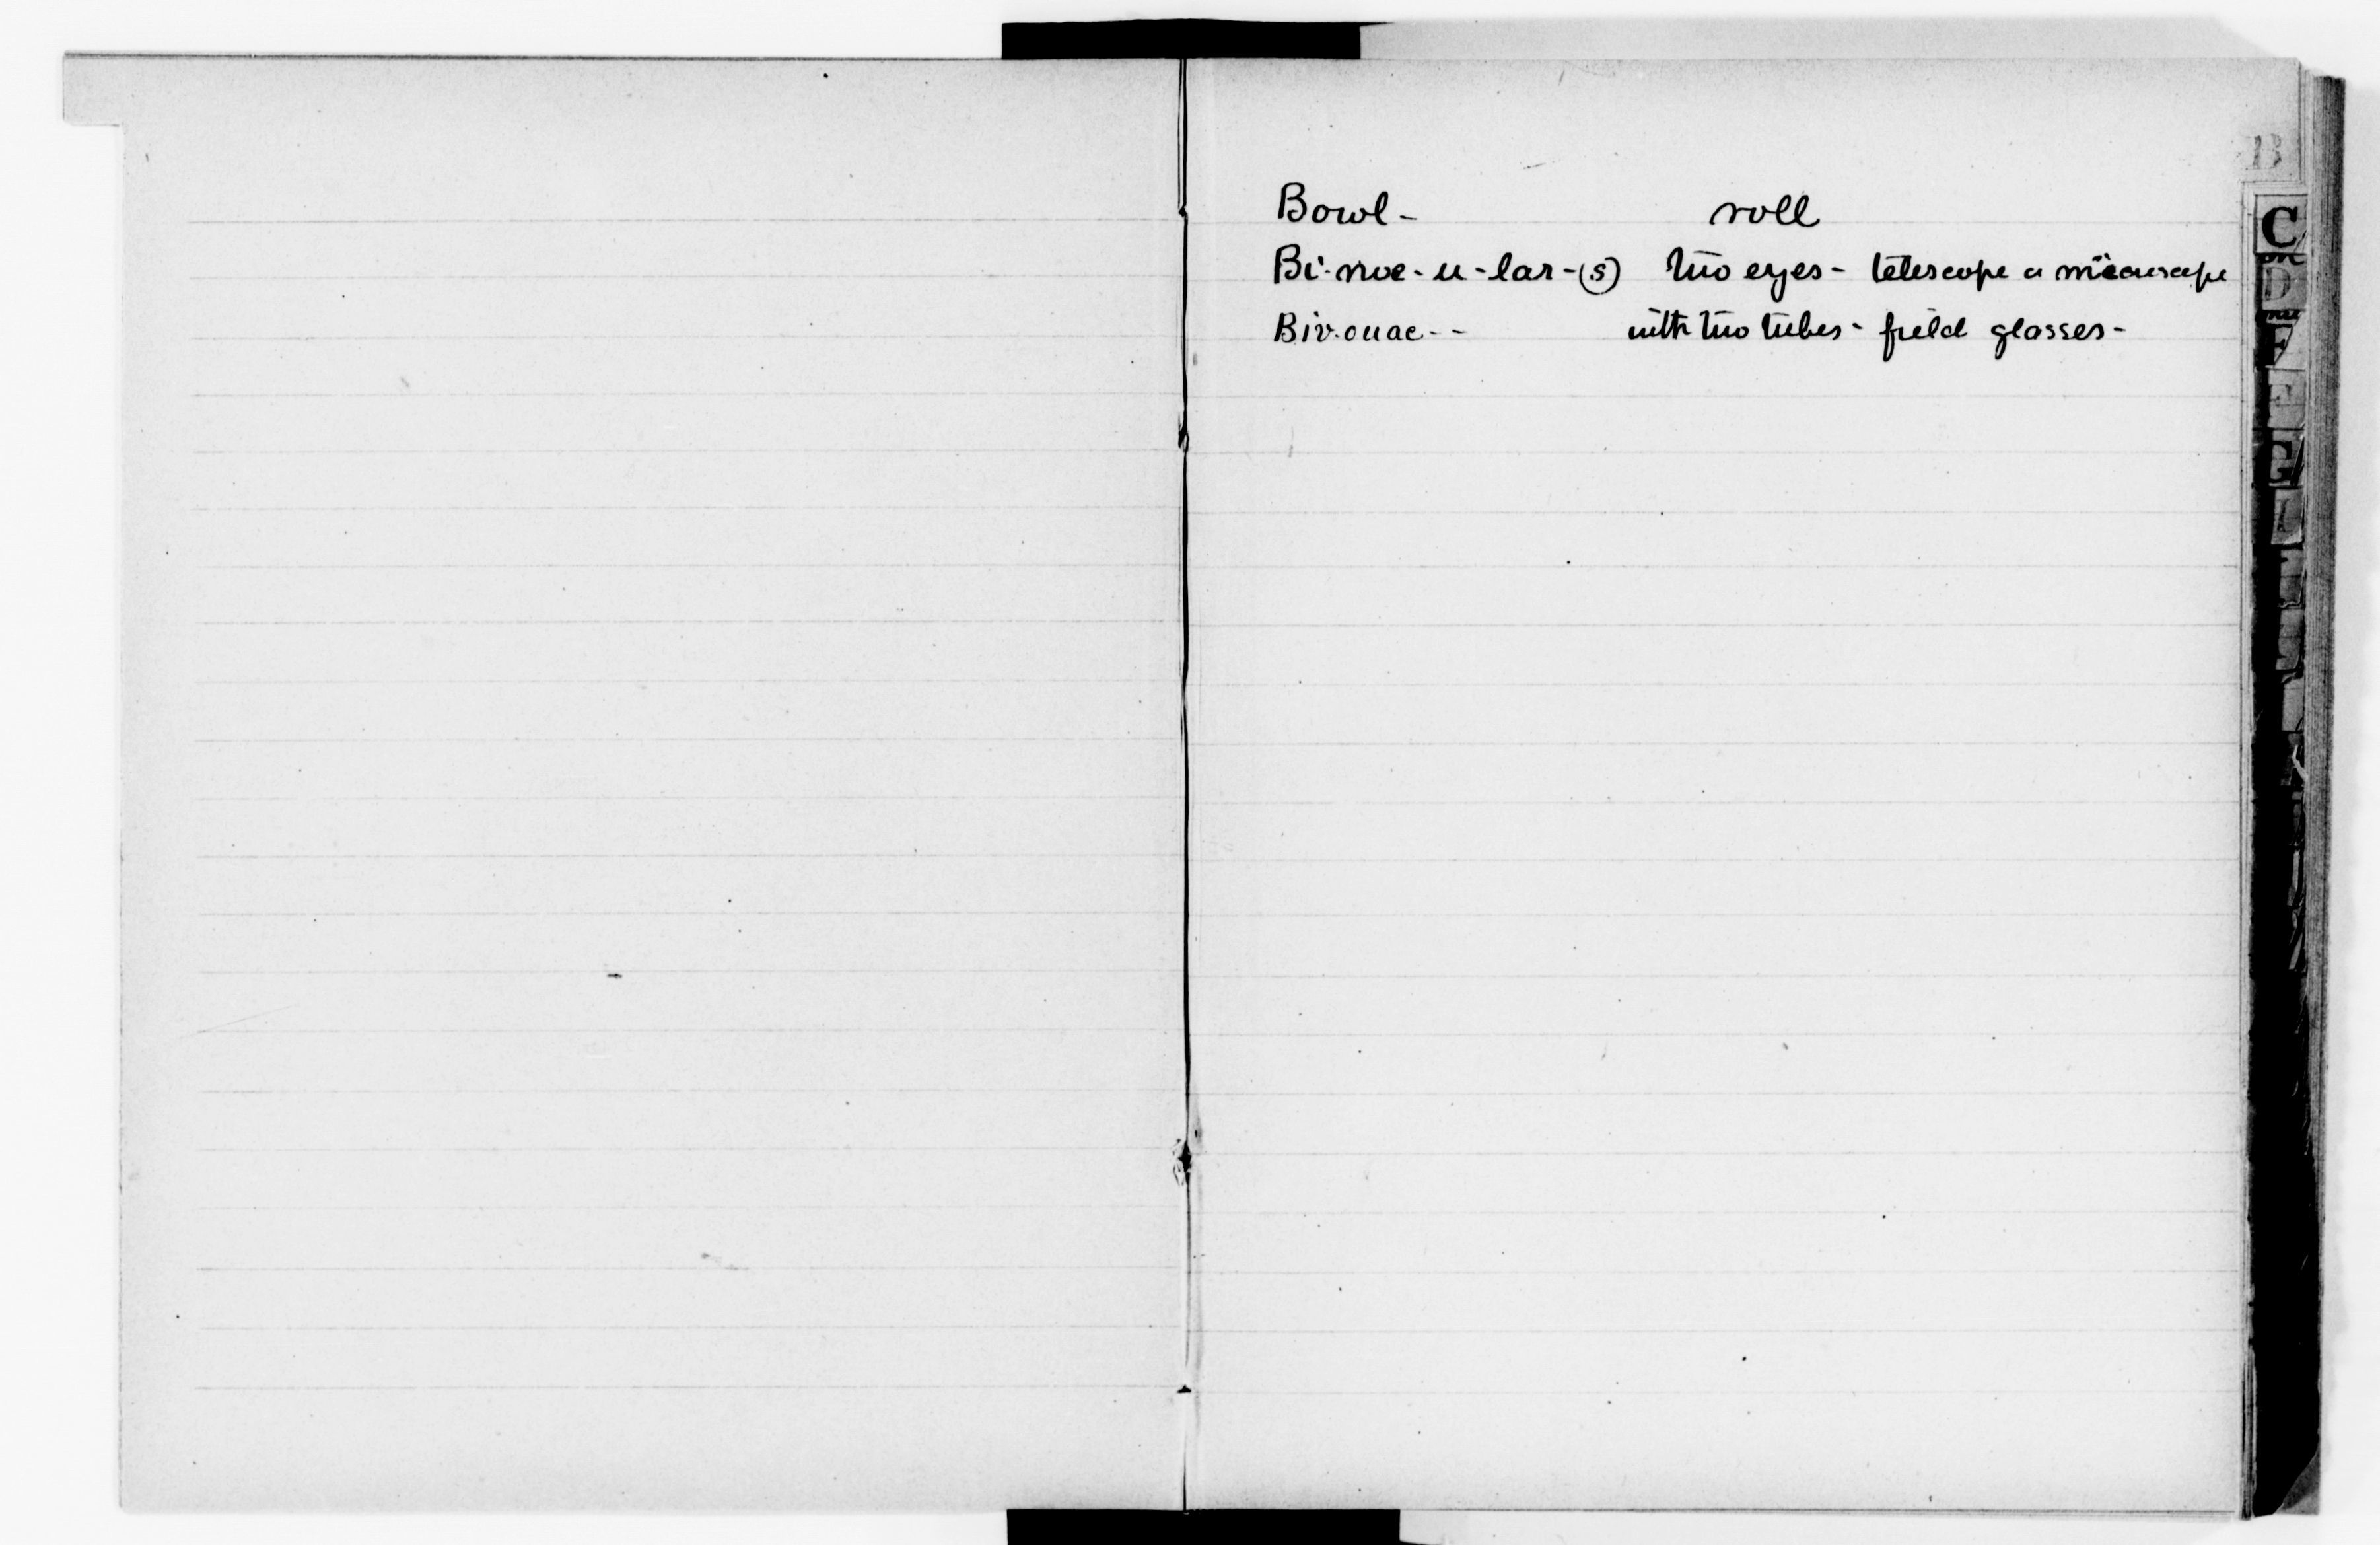 B
Bowl - roll
Bi-noc-u-lar-(s) two eyes - telescope or microscope
Biv.ouac - - with two tubes - field glasses -
C
D